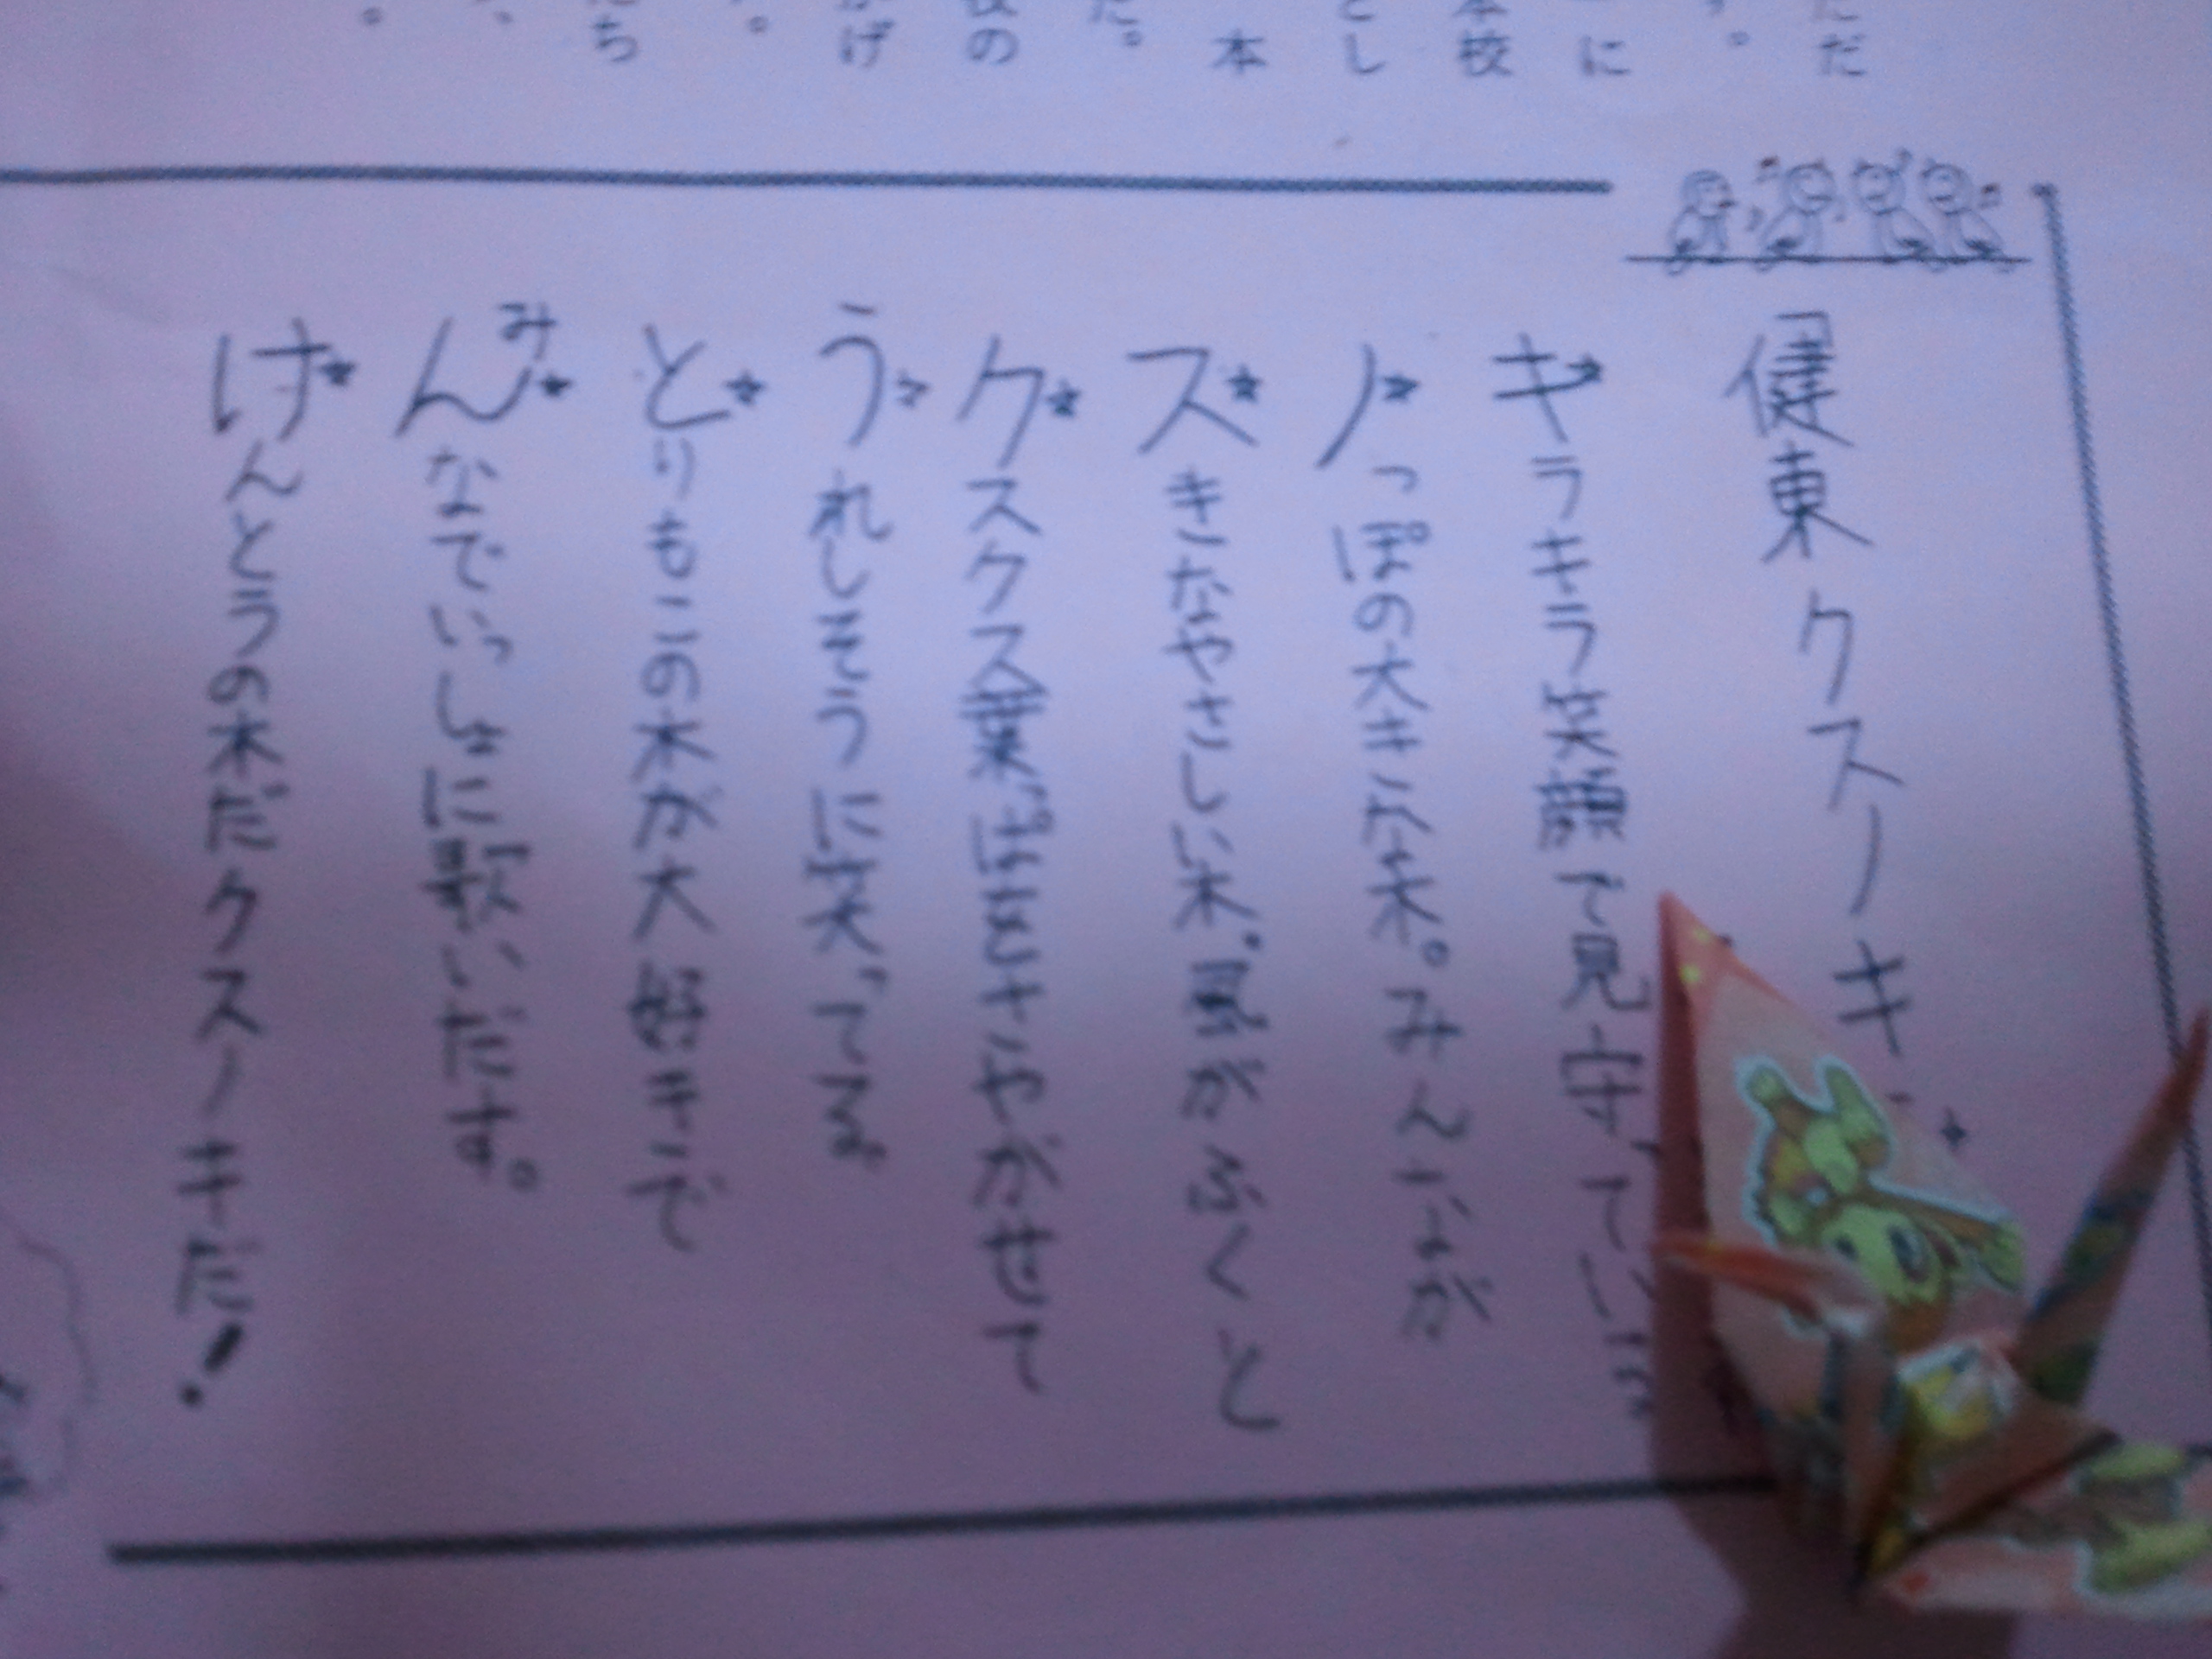 ただ
す。
に
本校
とし
本
た。
校の
かげ
す。
たち
、
。
健東クスノキ
キラキラ笑顔で見守っている
ノっぽの大きな木。みんなが
スきなやさしい木。風がふくと
クスクス葉っぱをさやがせて
うれしそうに笑ってる
とりもこの木が大好きで
んみなでいっしょに歌いだす。
けんとうの木だクスノキだ!